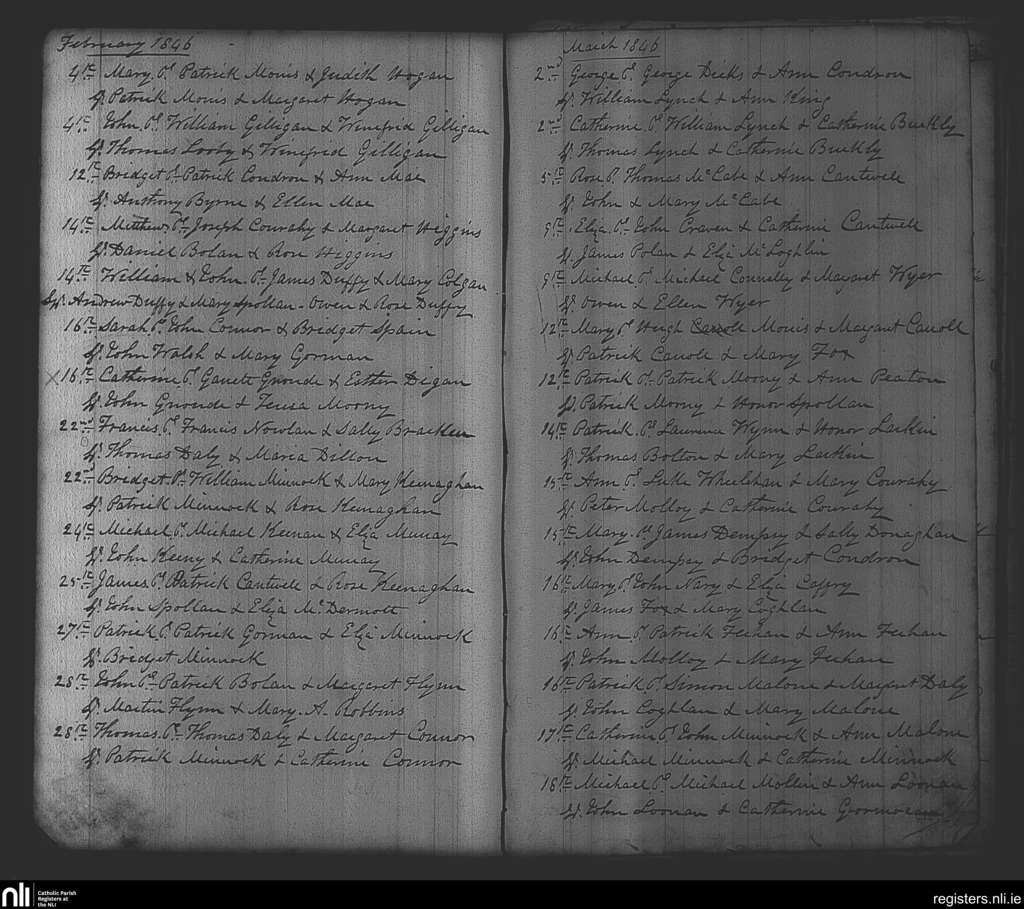 February 1846
4th Mary Ps. Patrick Monis & Judith Hogan
Sps. Patrick Monis & Margaret Hogan
4th John Ps. William Gilligan & Winefrid Gilligan
Sps. Thomas Looby & Winefrid Gilligan
12th Bridget Ps. Patrick Condron & Ann Mae
Sps. Anthony Byrne & Ellen Mae
14th Matthew Ps. Joseph Conrahy & Margaret Higgins
Sps. Daniel Bolan & Rose Higgins
14th William & John Ps. James Duffy & Mary Colgan
Sps. Andrew Duffy & Mary Spollan - Owen & Rose Duffy
16th Sarah Ps. John Connor & Bridget Spain
Sps. John Walsh & Mary Gorman
X 16th Catherine Ps. Garrett Gnoude & Esther Digan
Sps. John Gnoude & Teresa Moony
22nd Frances Ps. Francis Nowlan & Sally Bracken
Sps. Thomas Daly & Maria Dillon
22nd Bridget Ps. William Minnock & Mary Keenaghan
Sps. Patrick Minnock & Rose Keenaghan
24th Michael Ps. Michael Keenan & Eliza Murray
Sps. John Keeny & Catherine Murray
25th James Ps. Patrick Cantwell & Rose Keenaghan
Sps. John Spollan & Eliza McDermott
27th Patrick Ps. Patrick Gorman & Eliza Minnock
Sps. Bridget Minnock
28th John Ps. Patrick Bolan & Margaret Flynn
Sps. Martin Flynn & Mary A. Robbins
28th Thomas Ps. Thomas Daly & Margaret Connor
Sps. Patrick Minnock & Catherine Connor
March 1846
2nd George Ps. George Dicks & Ann Condron
Sps. William Lynch & Ann King
2nd Catherine Ps. William Lynch & Catherine Buckly
Sps. Thomas Lynch & Catherine Buckly
5th Rose Ps. Thomas McCabe & Ann Cantwell
Sps. John & Mary McCabe
9th Eliza Ps. John Craven & Catherine Cantwell
Sps. James Polan & Eliza McLoghlin
9th Michael Ps. Michael Connelly & Margaret Wyer
Sps. Owen & Ellen Wyer
12th Mary Ps. Hugh Monis & Margaret Carroll
Sps. Patrick Carroll & Mary Fox
12th Patrick Ps. Patrick Moony & Ann Peaton
Sps. Patrick Moony & Honor Spollan
14th Patrick Ps. Laurence Wynn & Honor Larkin
Sps. Thomas Bolton & Mary Larkin
15th Ann Ps. Luke Wheelehan & Mary Conrahy
Sps. Peter Molloy & Catherine Conrahy
15th Mary Ps. James Dempsy & Sally Donaghan
Sps. John Dempsy & Bridget Condron
16th Mary Ps. John Nary & Eliza Coffery
Sps. James Fox & Mary Coghlan
16th Ann Ps. Patrick Feehan & Ann Feehan
Sps. John Molloy & Mary Feehan
16th Patrick Ps. Simon Malone & Margaret Daly
Sps. John Coghlan & Mary Malone
17th Catherine Ps. John Minnock & Ann Malone
Sps. Michael Minnock & Catherine Minnock
18th Michael Ps. Michael Mollin & Ann Loonan
Sps. John Loonan & Catherine
nli Catholic Parish
Registers at
the NLI
registers.nli.ie